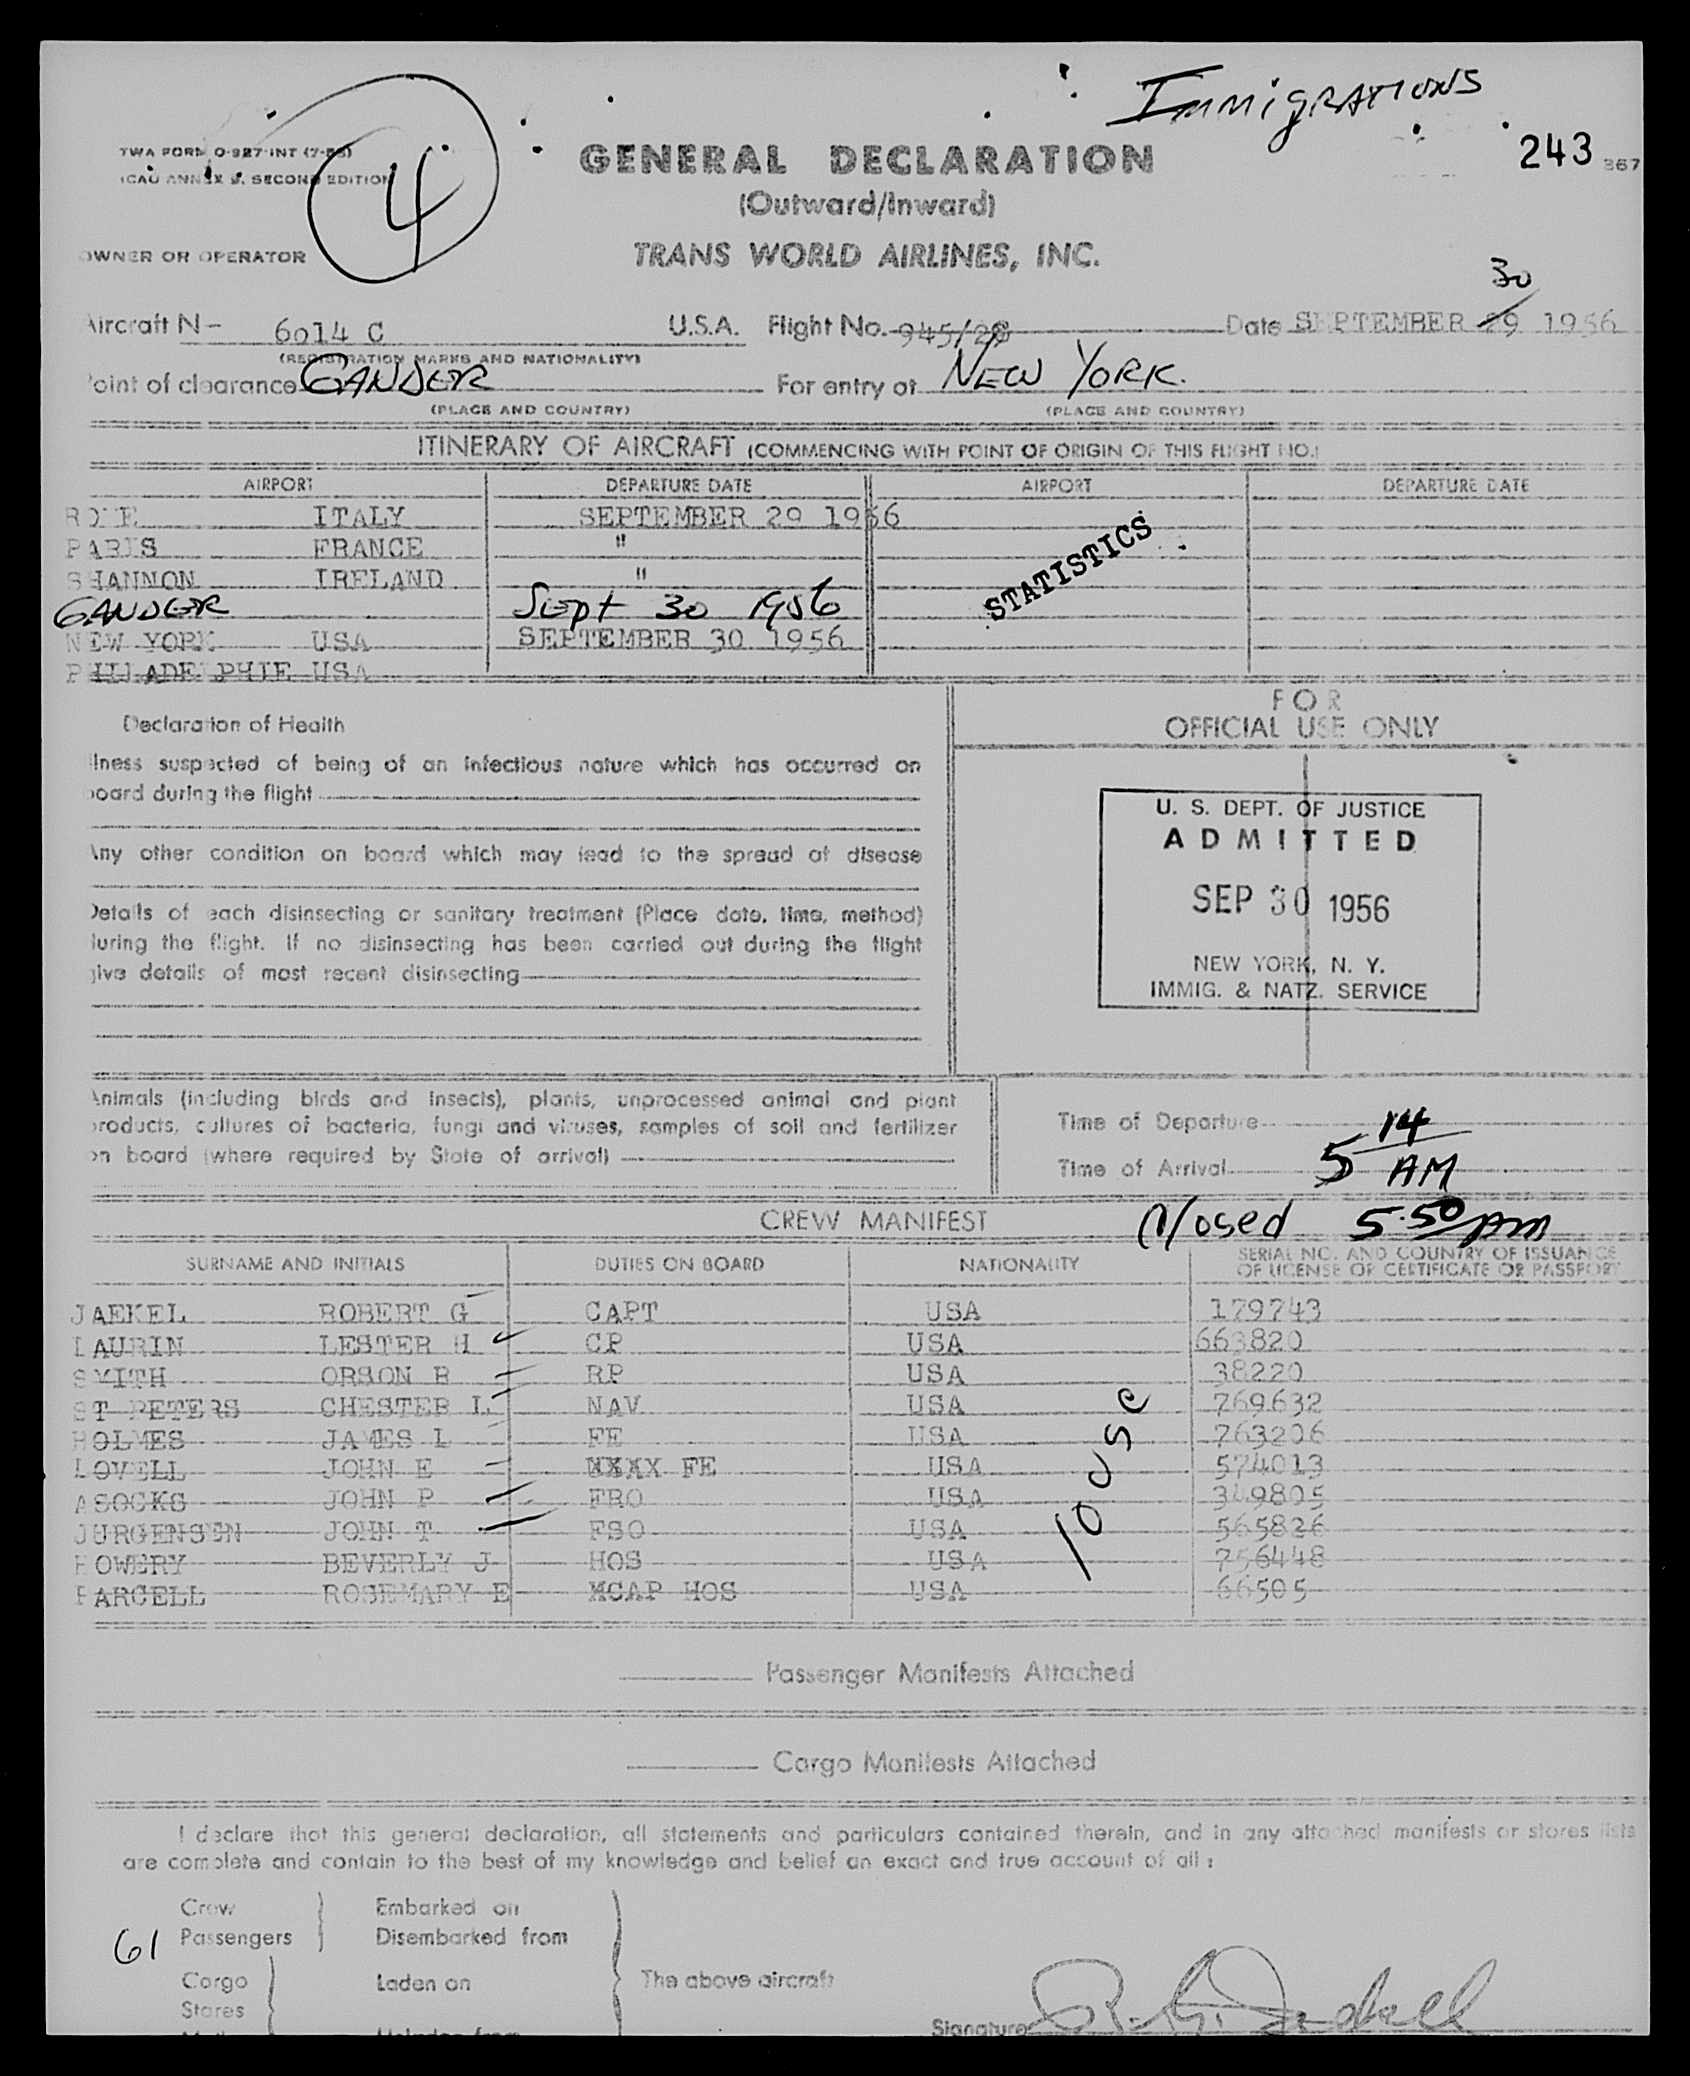 Immigrations
243 367
TWA FORM O-927-INT (7-55)
ICAO ANNEX 9, SECOND EDITION
4
GENERAL DECLARATION
(Outward/Inward)
OWNER OR OPERATOR TRANS WORLD AIRLINES, INC.
30
Aircraft N- 6014 C U.S.A. Flight No. 945/28 Date SEPTEMBER 29 1956
(REGISTRATION MARKS AND NATIONALITY)
Point of clearance GANDER For entry at NEW YORK.
(PLACE AND COUNTRY) (PLACE AND COUNTRY)
ITINERARY OF AIRCRAFT (COMMENCING WITH POINT OF ORIGIN OF THIS FLIGHT NO.)
AIRPORT DEPARTURE DATE AIRPORT DEPARTURE DATE
ROME ITALY SEPTEMBER 29 1956
PARIS FRANCE "
SHANNON IRELAND "
STATISTICS
GANDER Sept 30 1956
NEW YORK USA SEPTEMBER 30 1956
PHILADELPHIE USA
FOR
OFFICIAL USE ONLY
Declaration of Health
Illness suspected of being of an infectious nature which has occurred on
board during the flight
Any other condition on board which may lead to the spread of disease
Details of each disinsecting or sanitary treatment (Place date, time, method)
during the flight. If no disinsecting has been carried out during the flight
give details of most recent disinsecting
U. S. DEPT. OF JUSTICE
ADMITTED
SEP 30 1956
NEW YORK, N. Y.
IMMIG. & NATZ. SERVICE
Animals (including birds and insects), plants, unprocessed animal and plant
products, cultures of bacteria, fungi and viruses, samples of soil and fertilizer
on board (where required by State of arrival)
Time of Departure
Time of Arrival 5 14 AM
CREW MANIFEST
Closed 5.50 am
SURNAME AND INITIALS DUTIES ON BOARD NATIONALITY SERIAL NO. AND COUNTRY OF ISSUANCE
OF LICENSE OR CERTIFICATE OR PASSPORT
JAEKEL ROBERT G CAPT USA 179743
LAURIN LESTER H CP USA 663820
SMITH ORSON R RP USA 38220
ST PETERS CHESTER L NAV USA 769632
HOLMES JAMES L FE USA 763206
LOVELL JOHN E XXXX FE USA 574013
ASOCKS JOHN P FRO USA 349805
JURGENSEN JOHN T FSO USA 565826
BEVERLY J HOS USA 756448
ROSEMARY E XCAP HOS USA 66505
10 USC
Passenger Manifests Attached
Cargo Manifests Attached
I declare that this general declaration, all statements and particulars contained therein, and in any attached manifests or stores lists
are complete and contain to the best of my knowledge and belief an exact and true account of all :
Crew Embarked on
61 Passengers Disembarked from
Cargo Laden on The above aircraft
Stores
Signature